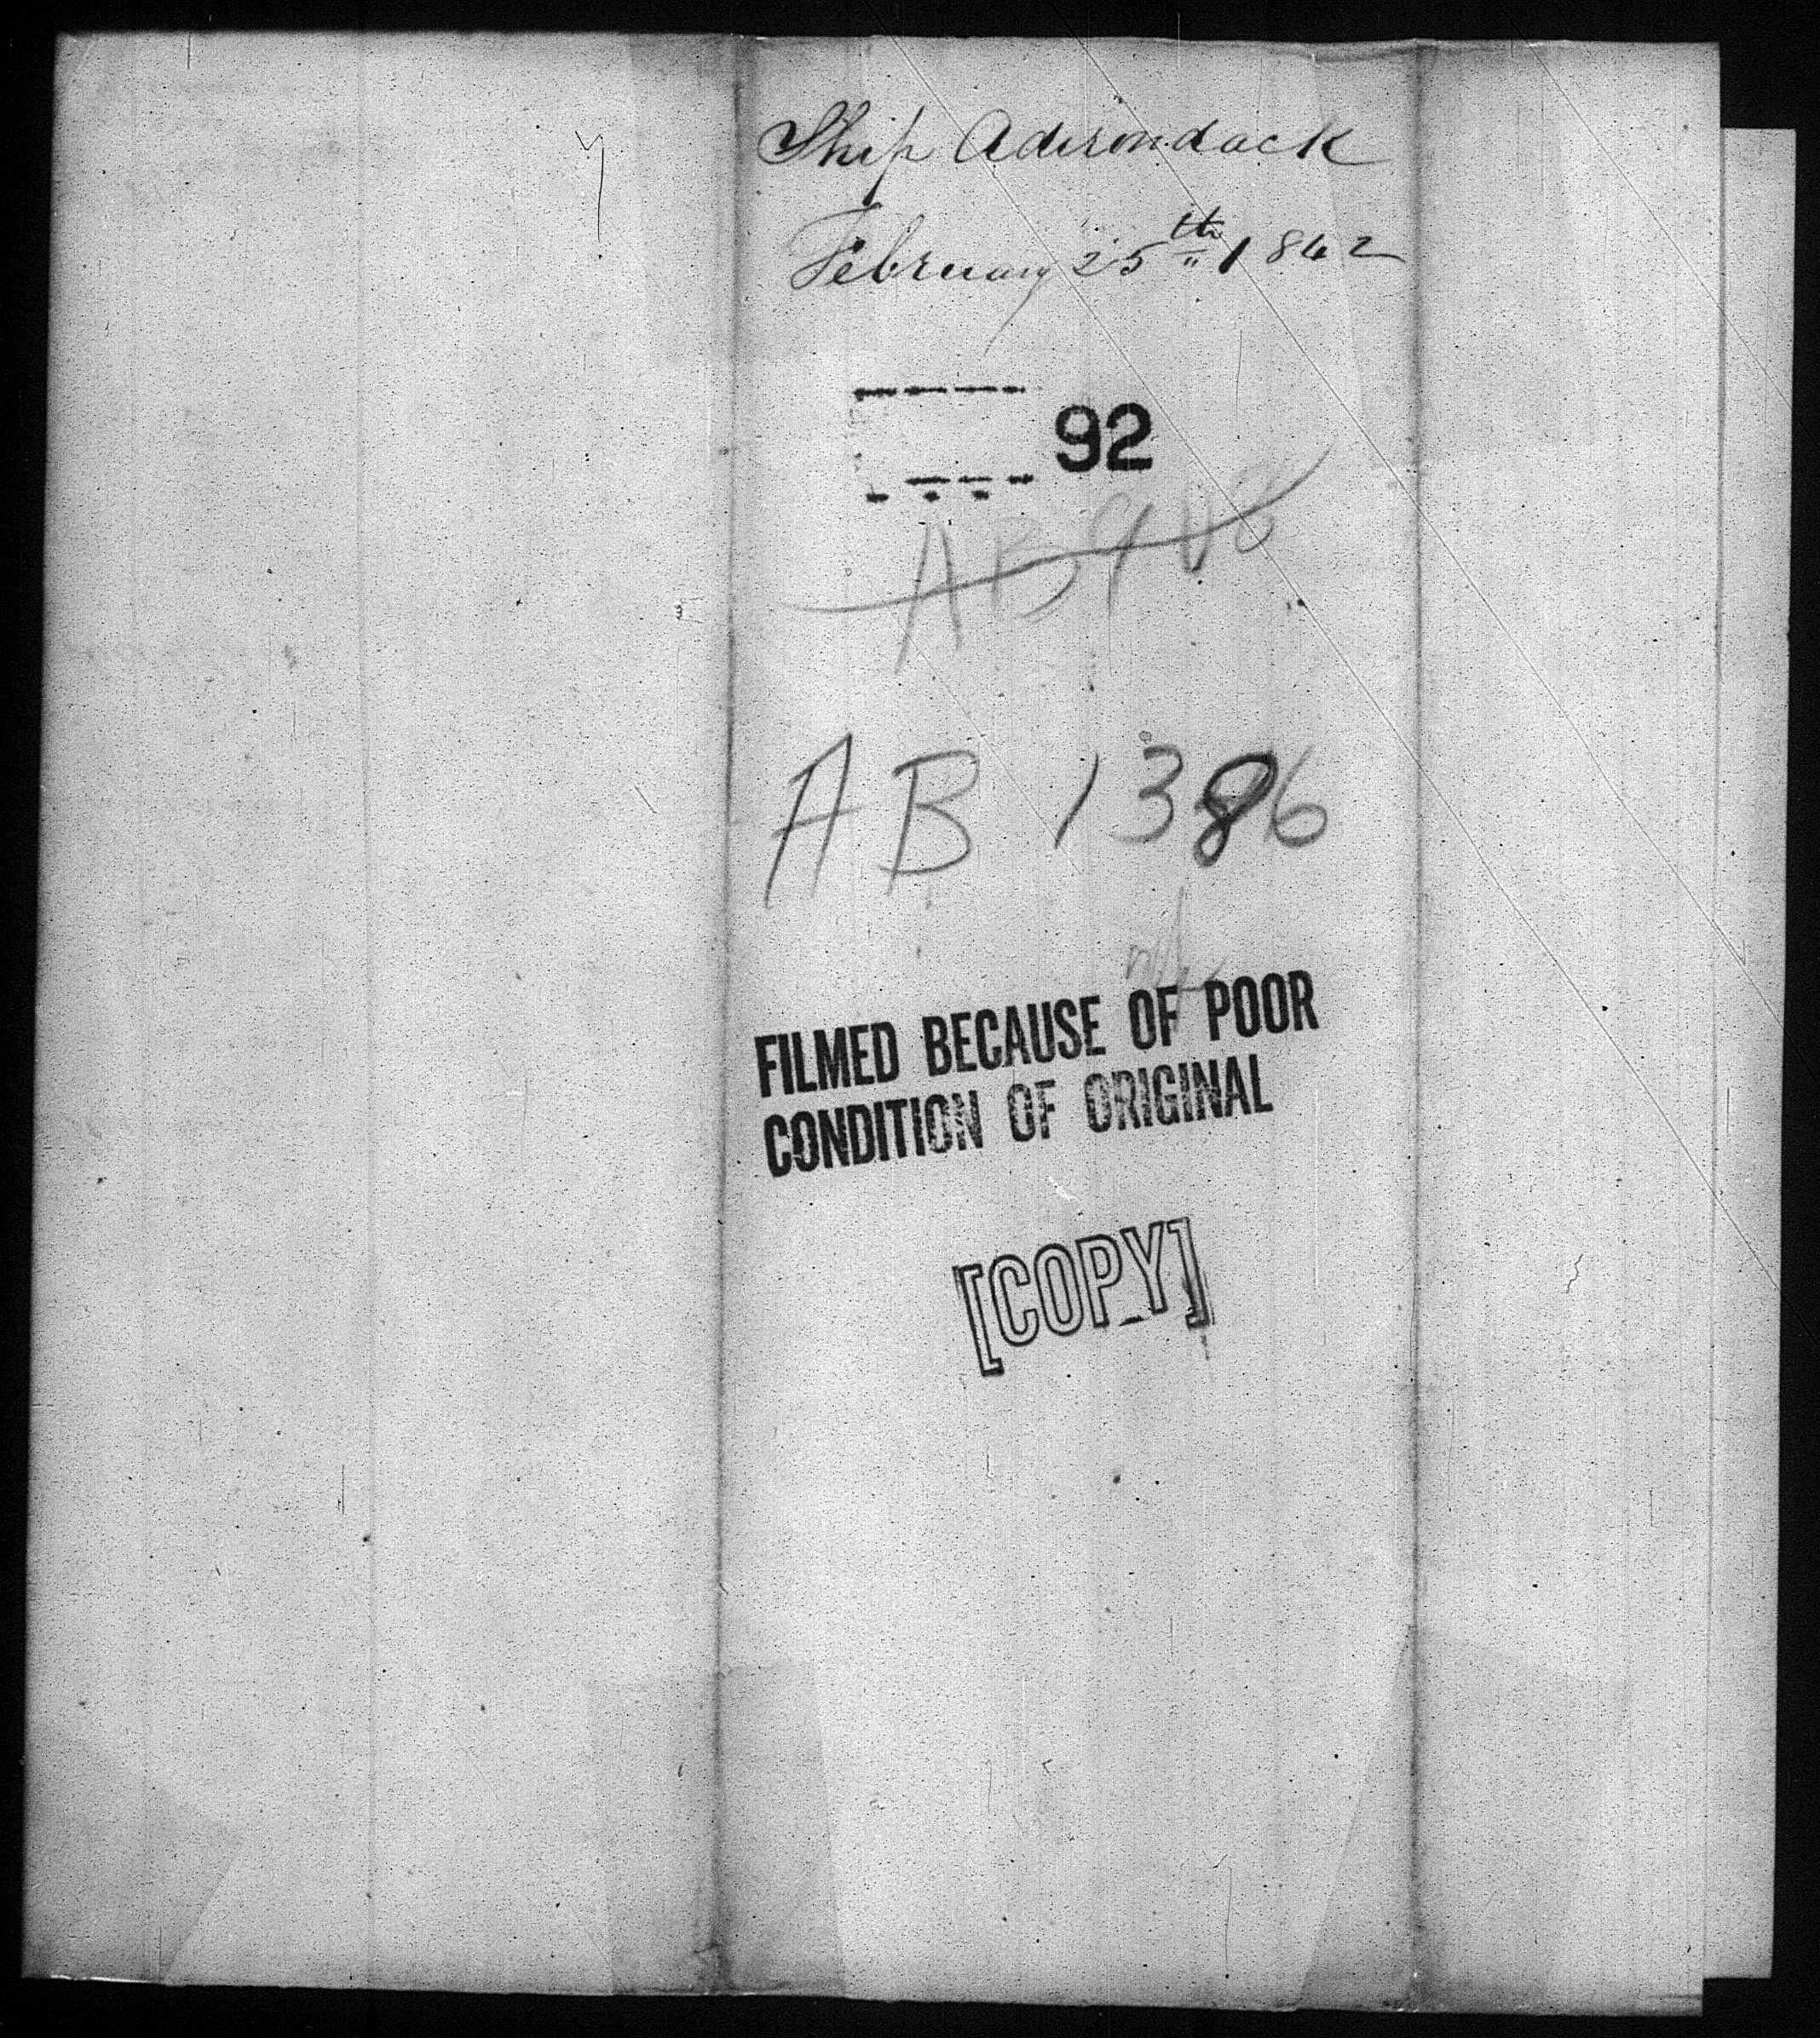 Ship Adirondack
February 25th 1842
92
AB 1386
FILMED BECAUSE OF POOR
CONDITION OF ORIGINAL
[COPY]